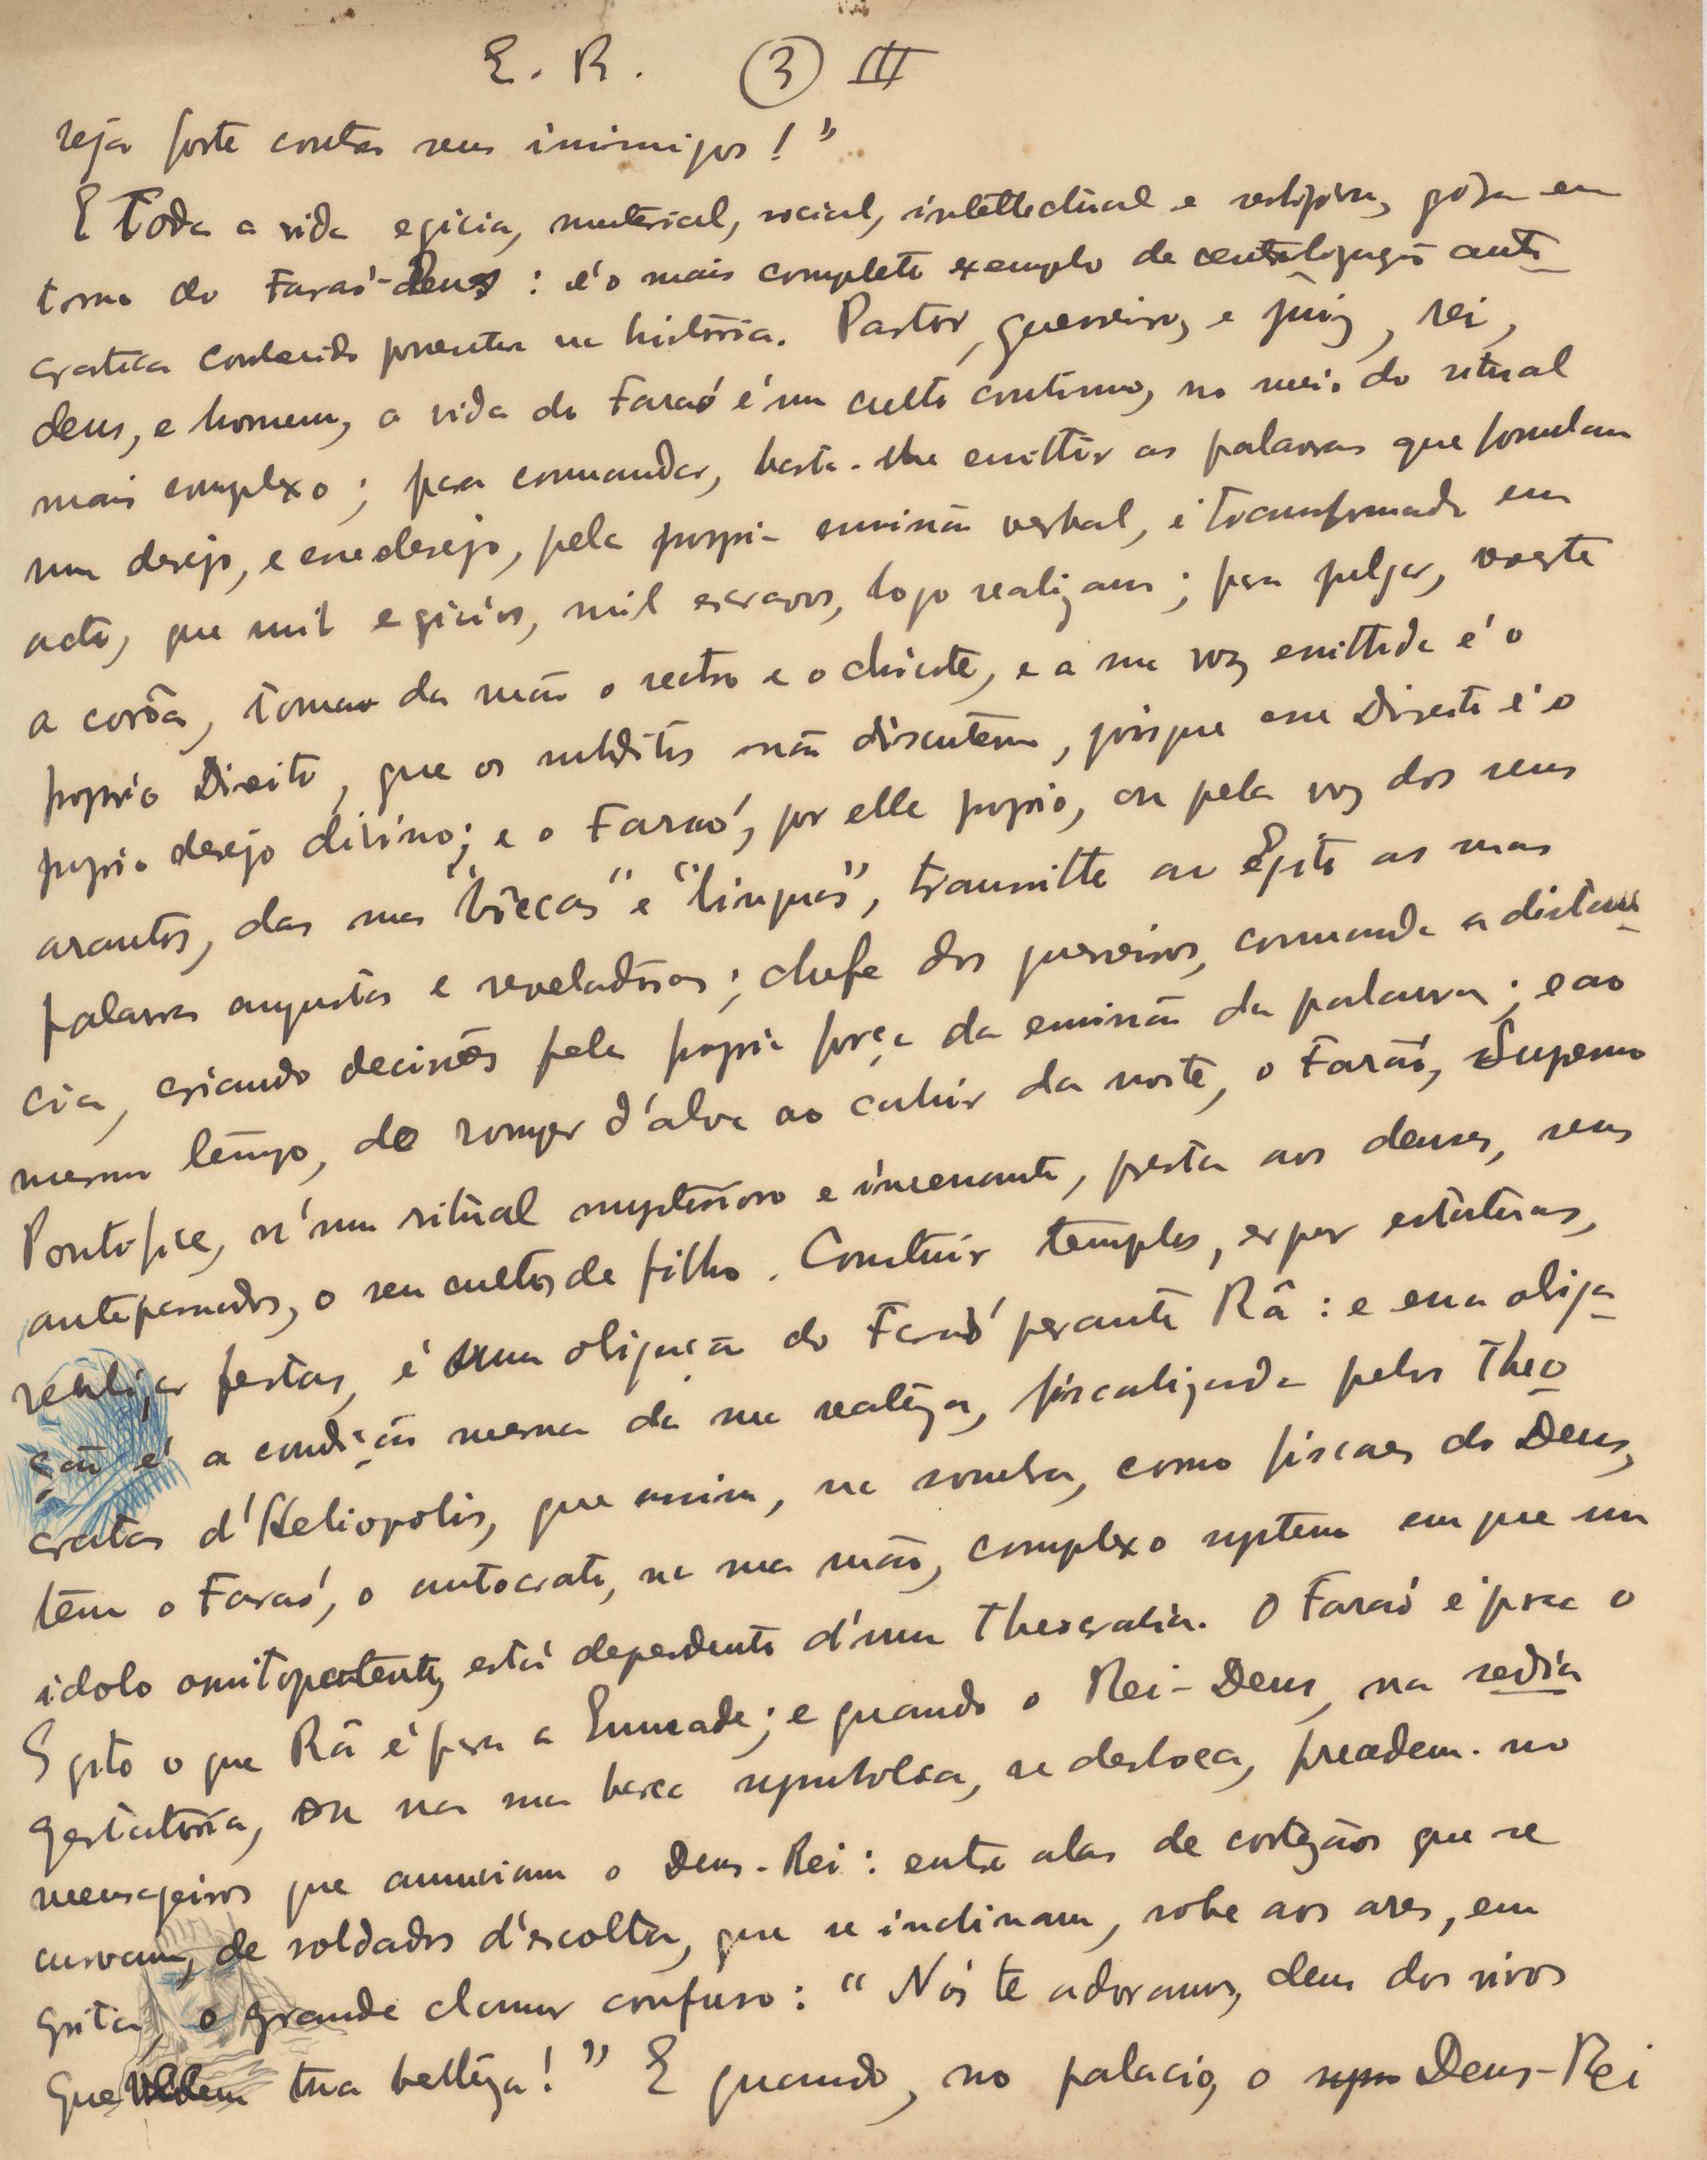 E. R. (3) III
seja forte contra seus inimigos!"
E Toda a vida egicia, material, social, intellectual e religiosa, góza em
torno do Faraó-deus: é o mais completo exemplo de centralização auto-
cratica conhecido porventura na história. Pastor, guerreiro, e juiz, rei,
deus, e homem, a vida do Faraó é um culto continuo, no meio do ritual
mais complexo; para commandar, basta-lhe emittir as palavras que formulam
um desejo, e esse desejo, pela propria emissão verbal, é transformado em
acto, que mil egicios, mil escravos, logo realizam; para julgar, veste
a corôa, toma da mão o sectro e o chicote, e a sua voz emittida é o
proprio Direito, que os subditos não discutem, porque esse Direito é o
proprio desejo divino; e o Faraó, por elle proprio, ou pela voz dos seus
arautos, das suas "bôccas" e "linguas", transmitte ao Egito as suas
palavras augustas e reveladoras; chefe dos guerreiros, commanda a distan-
cia, criando decisões pela propria força da emissão da palavra; e ao
mesmo tempo, do romper d'alva ao cahir da noite, o Faraó, Supremo
Pontifice, n'um ritual mysterioso e incessante, presta aos deuses, seus
antepassados, o seu culto de filho. Construir templos, erguer estatuas,
realizar festas, é uma obrigação do Faraó perante Râ: e essa obriga-
ção é a condição mesma da sua realeza, fiscalizada pelos Theo-
cratas d'Heliopolis, que assim, na sombra, como fiscaes do Deus,
têm o Faraó, o autocrata, na sua mão, complexo systema em que um
idolo omitopotente, está dependente d'uma Theocracia. O Faraó é para o
Egito o que Râ é para a Enneade; e quando o Rei-Deus, na sedia
gestatoria, ou na sua barca symbolica, se desloca, precedem-no
mensageiros que annunciam o Deus-Rei: entre alas de cortezãos que se
curvam, de soldados d'escolta, que se inclinam, sobe aos ares, em
grita, o grande clamor confuso: "Nós te adoramos, deus dos vivos
que tua belleza!" E quando, no palacio, o Deus-Rei